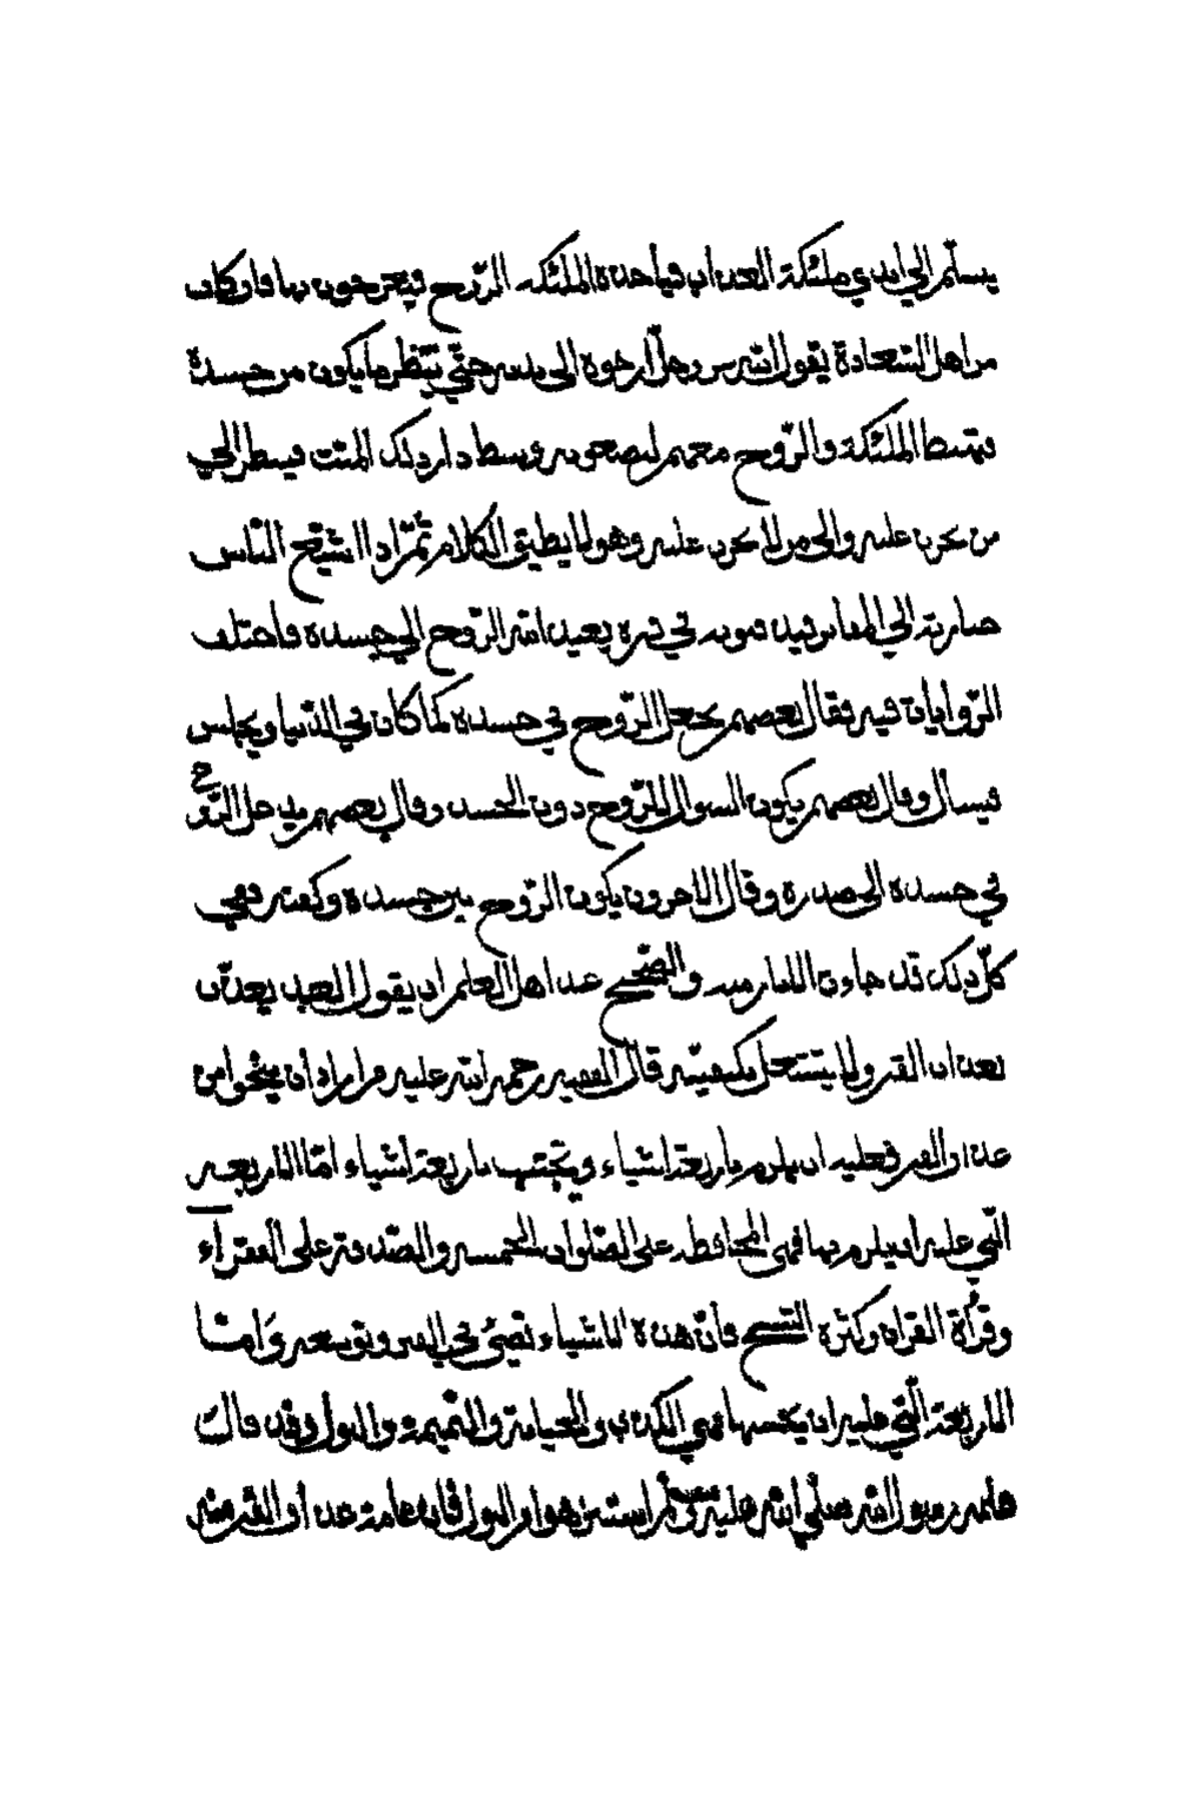 يسلّم الي ايدي ملئكة العذاب فياخذه الملئكه الرّوح فيعرجون بها فان كان
من اهل السّعادة يقول اللّه عزّ وجلّ ارجوه الى بدنه حتّي ينظر ما يكون من جسده
فتهبط الملئكة والرّوح معهم ليضعونه وسط دار ذلك الميّت فينظر الي
من يحزن عليه والى من لا يحزن عليه وهو لا يطيق الكلام ثمّ اذا اشيّع الناس
جنازته الي المقابر فيه يعيد اللّه الرّوح الي جسده فاختلف
الرّوايات فيه فقال بعضهم يجعل الرّوح في جسده كما كان في الدّنيا ويجلس
فيسأل وقال بعضهم يكون السوال للرّوح دون الجسد وقال بعضهم يدخل الرّوح
في جسده الى صدره وقال الاخرون يكون الرّوح بين جسده وكفنه ففي
كلّ ذلك قد جاءت الاثار والصّحيح عند اهل العلم ان يقول العبد
بعذاب القبر ولا يشتغل بكيفيّته قال الفقيه رحمة اللّه عليه من اراد أن ينجوا من
عذاب القبر فعليه ان يلزم باربعة اشياء ويجتنب باربعة اشياء امّا الاربعة
الّتي عليه ان يلزم بها فهي المحافظه على الصّلوات الخمسه والصّدقة على الفقرآء
وقرأة القران وكثرة التسبيح فانّ هذه الاشياء تضيئ في القبر وتوسعه وَامّا
الاربعة الّتي عليه ان يجتنبها فهي الكذب والخيانة والنميمة والبول وقد قال
عليه رسول اللّه صلّي اللّه عليه وسلّم استنزهوا من البول فان عامة عذاب القبر منه